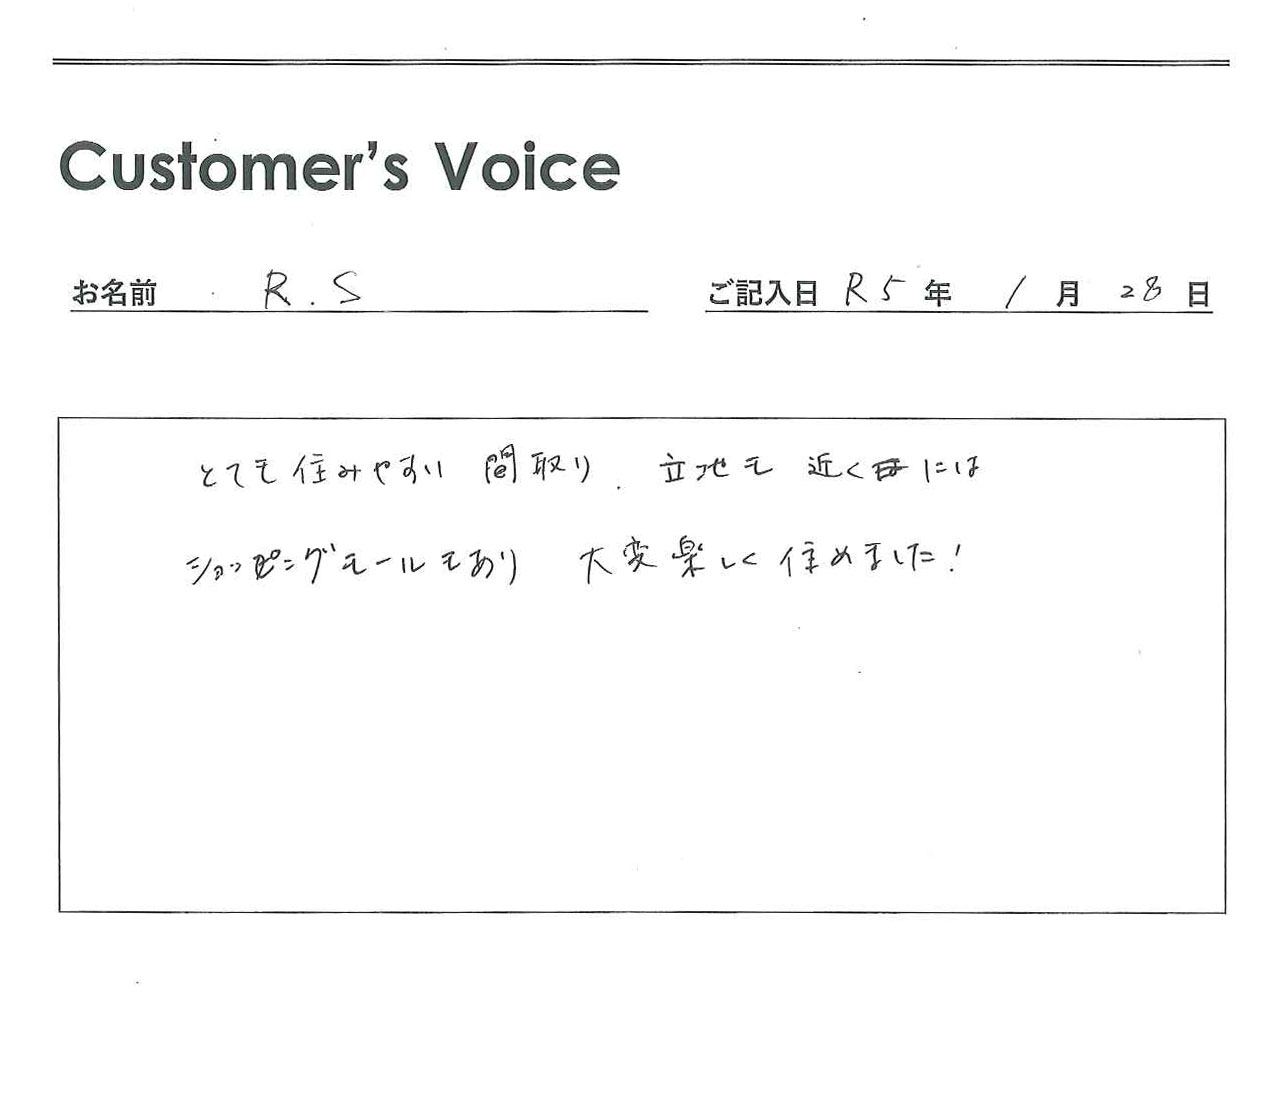 Customer's Voice
お名前 R.S ご記入日 R5年 1月 28日
とても住みやすい間取り. 立地も 近くには
ショッピングモールもあり 大変楽しく住めました!